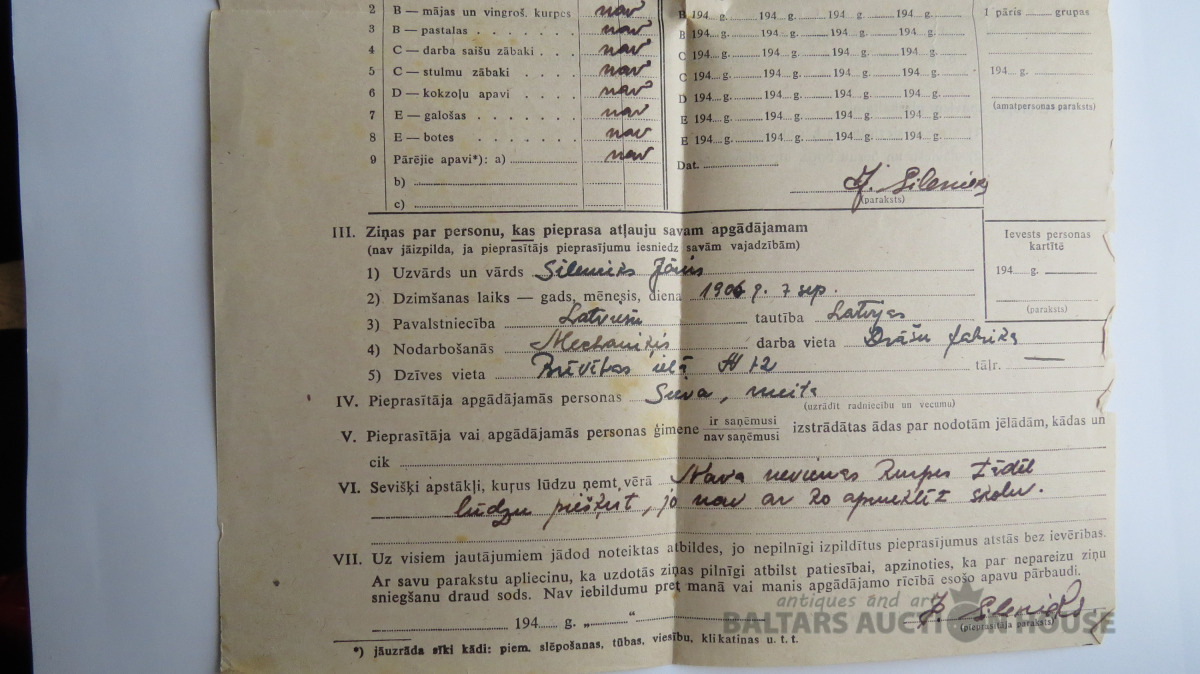 2 B — mājas un vingroš. kurpes nav B 194.... g. 194.... g. 194.... g. 194.... g. 1 pāris grupas
3 B — pastalas nav B 194.... g. 194.... g. 194.... g. 194.... g.
4 C — darba saišu zābaki nav C 194.... g. 194.... g. 194.... g. 194.... g.
5 C — stulmu zābaki nav C 194.... g. 194.... g. 194.... g. 194.... g. 194.... g.
6 D — kokzoļu apavi nav D 194.... g. 194.... g. 194.... g. 194.... g.
(amatpersonas paraksts)
7 E — galošas nav E 194.... g. 194.... g. 194.... g. 194.... g.
8 E — botes nav E 194.... g. 194.... g. 194.... g. 194.... g.
9 Pārējie apavi*): a) nav Dat.
b) J. Silenieks
c) (paraksts)
III. Ziņas par personu, kas pieprasa atļauju savam apgādājamam
(nav jāizpilda, ja pieprasītājs pieprasījumu iesniedz savām vajadzībām)
Ievests personas
kartītē
194 g.
(paraksts)
1) Uzvārds un vārds Silenieks Jānis
2) Dzimšanas laiks — gads, mēnesis, diena 1906 g. 7 sep.
3) Pavalstniecība Latviešu tautība Latvijas
4) Nodarbošanās Mechaniķis darba vieta Drāšu fabrika
5) Dzīves vieta Brīvības ielā 12 tālr. —
IV. Pieprasītāja apgādājamās personas Sieva, meita
(uzrādīt radniecību un vecumu)
V. Pieprasītāja vai apgādājamās personas ģimene ir saņēmusi / nav saņēmusi izstrādātas ādas par nodotām jēlādām, kādas un
cik
VI. Sevišķi apstākļi, kuŗus lūdzu ņemt vērā Nava nevienas Kurpes tādēl
lūdzu piešķirt, jo nav ar ko apmeklēt skolu.
VII. Uz visiem jautājumiem jādod noteiktas atbildes, jo nepilnīgi izpildītus pieprasījumus atstās bez ievērības.
Ar savu parakstu apliecinu, ka uzdotās ziņas pilnīgi atbilst patiesībai, apzinoties, ka par nepareizu ziņu
sniegšanu draud sods. Nav iebildumu pret manā vai manis apgādājamo rīcībā esošo apavu pārbaudi.
194 g. „ “ J. Silenieks
(pieprasītāja paraksts)
*) jāuzrāda sīki kādi: piem. slēpošanas, tūbas, viesību, klikatinas u. t. t.
antiques and art
BALTARS AUCTION HOUSE